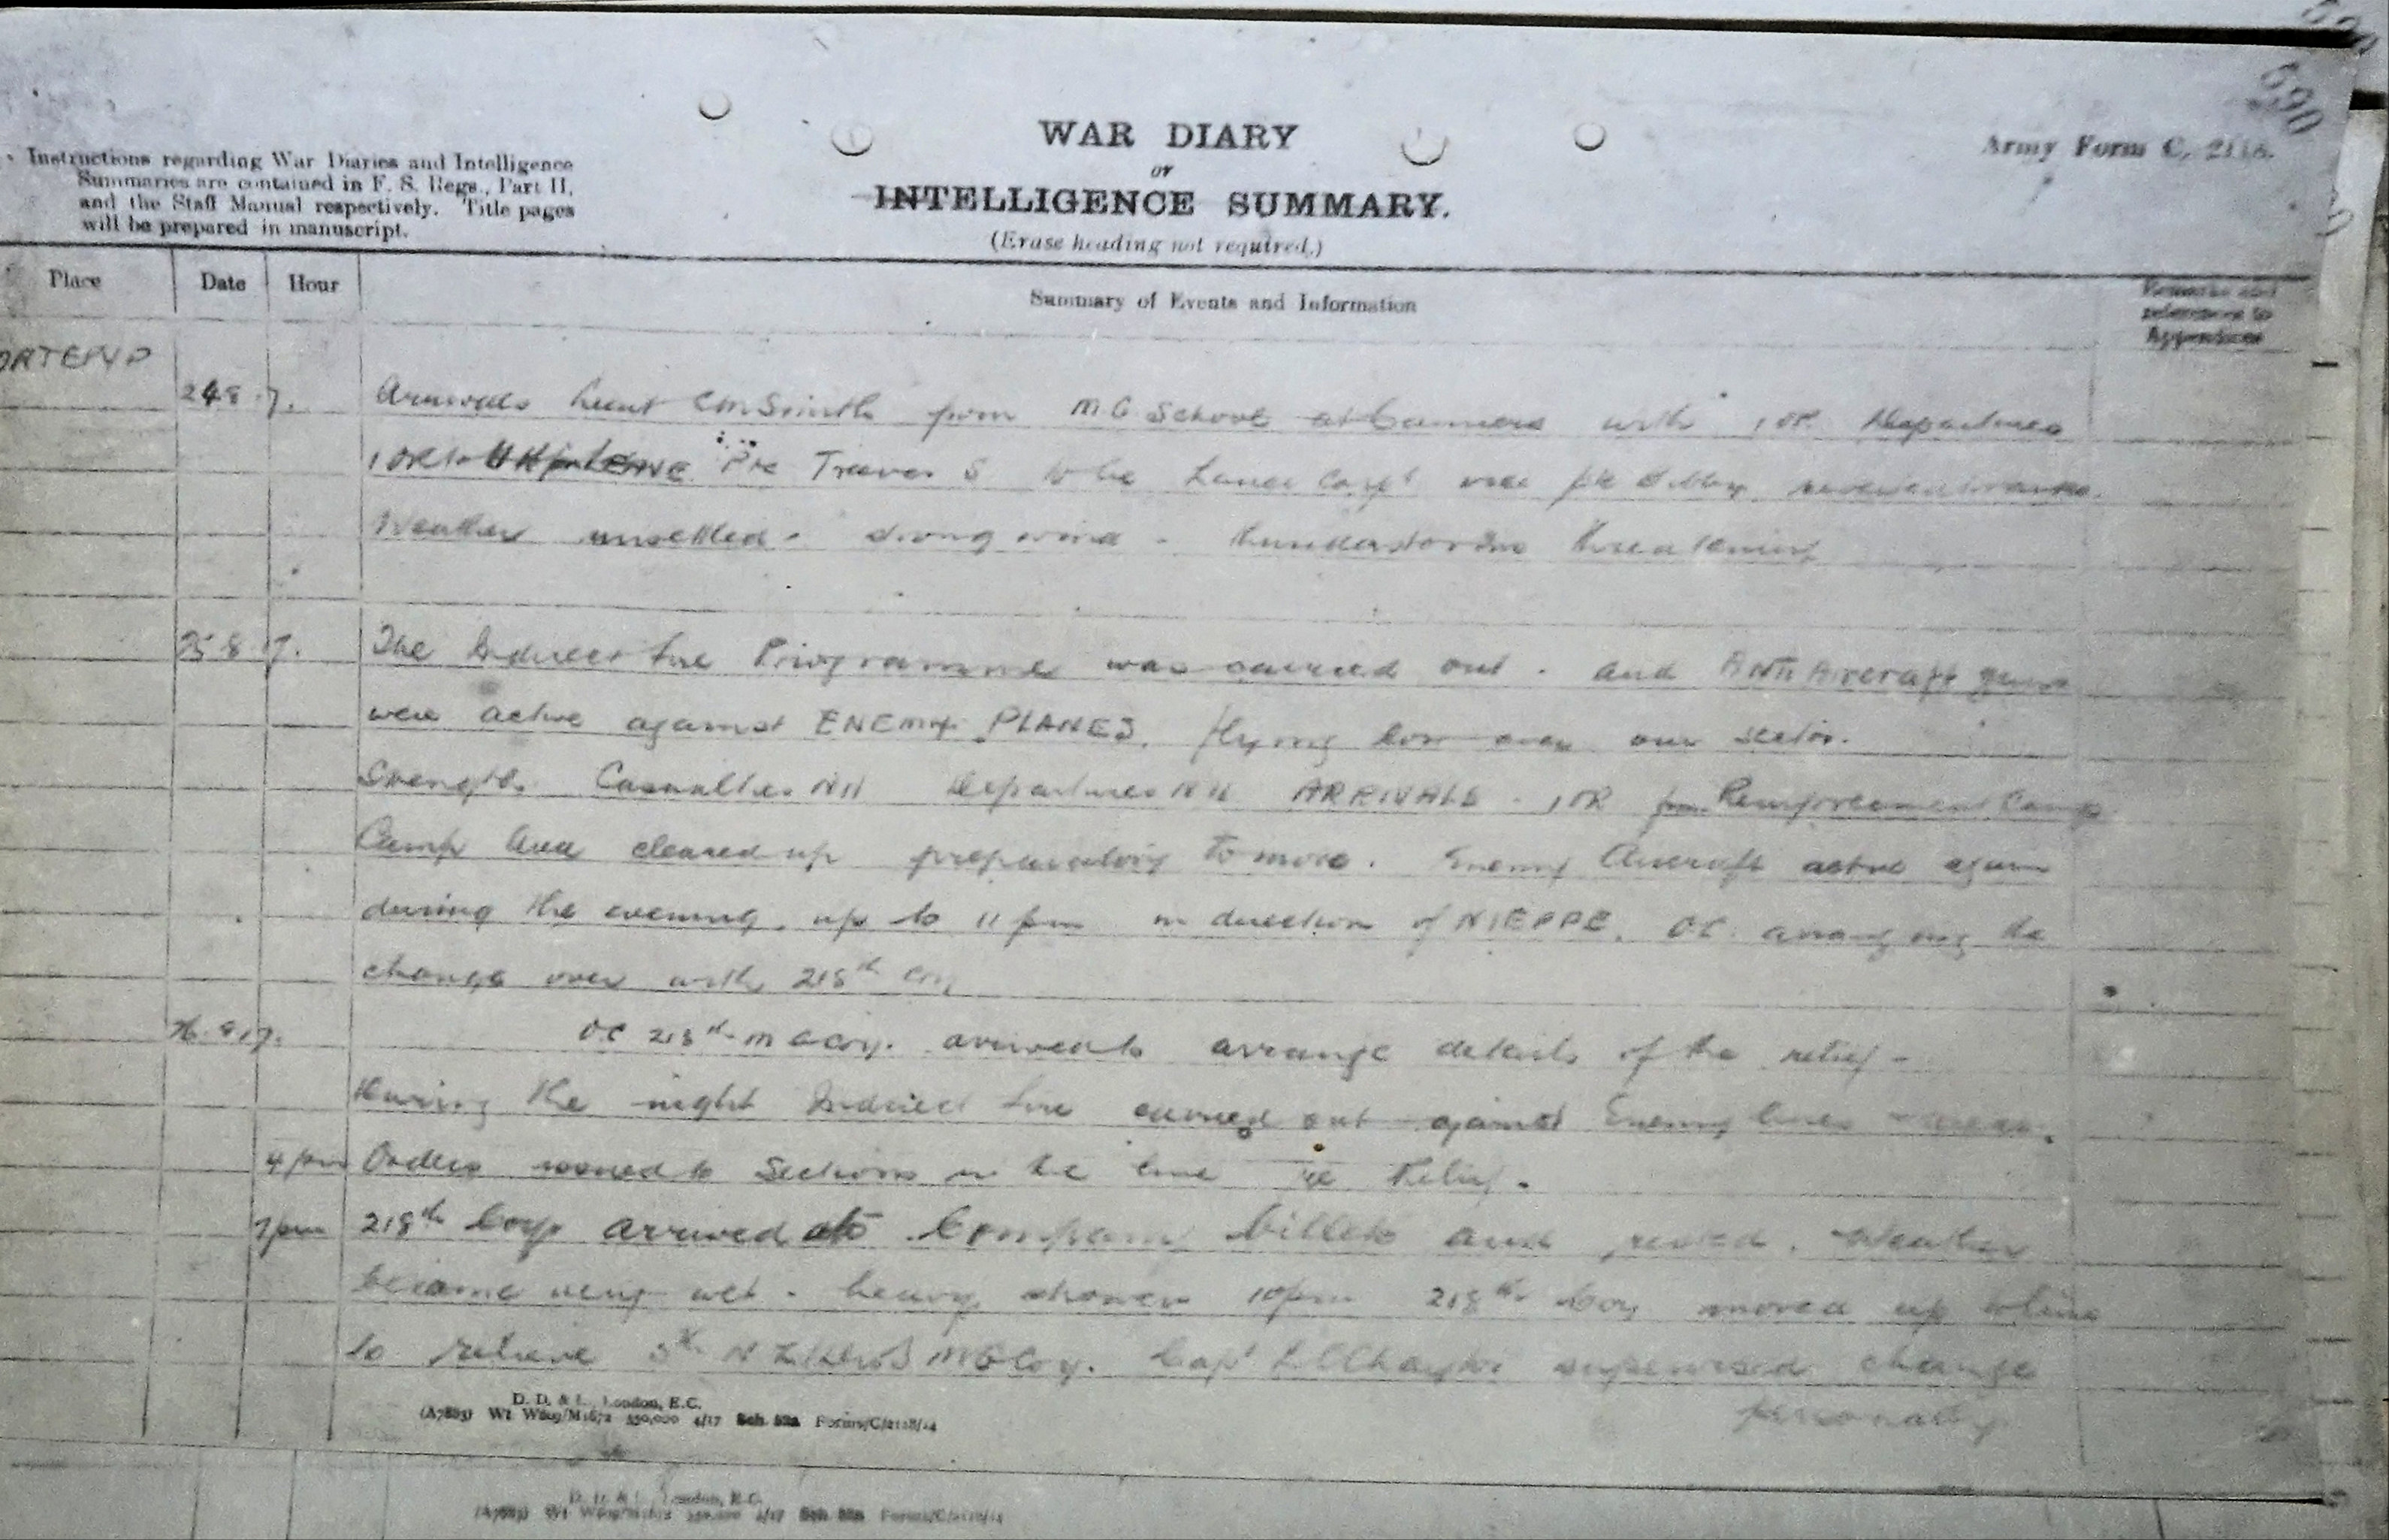 Instructions regarding War Diaries and Intelligence
Summaries are contained in F. S. Regs., Part II,
and the Staff Manual respectively. Title pages
will be prepared in manuscript.
WAR DIARY
or
INTELLIGENCE SUMMARY.
(Erase heading not required.)
Army Form C. 2118.
690
Place
Date
Hour
Summary of Events and Information
Remarks and
references to
Appendices
24 8 17.
Arrivals Lieut CM Smith from M G School at Camiers with 1 OR Departures
1 OR to UK Pte Treavor S to be Lance Corpl vice Pte
Weather unsettled - strong wind - thunderstorms threatening
25 8 17.
The Indirect fire Programme was carried out . and Anti Aircraft guns
were active against ENEMY PLANES, flying low over our sector.
Strength. Casualties Nil Departures Nil ARRIVALS - 1 OR from Reinforcement Camp
Camp Area cleared up preparatory to move. Enemy Aircraft active again
during the evening, up to 11 pm in direction of NIEPPE. OC arranging the
change over with 218th Coy
26.8.17.
OC 218th M G Coy. arrived to arrange details of the relief -
During the night Indirect fire carried out against Enemy lines
4 pm Orders issued to Sections in the line re Relief.
7 pm 218th Coy arrived at Company billets and rested. Weather
became very wet - heavy showers 10 pm 218th Coy moved up to line
to relieve 3rd N Z M G Coy. Capt supervised change
personally.
D. D. & L., London, E.C.
(A7883) Wt W809/M1672 350,000 4/17 Sch. 52a Forms/C/2118/14
D. D. & L., London, E.C.
(A7883) Wt W809/M1672 350,000 4/17 Sch. 52a Forms/C/2118/14